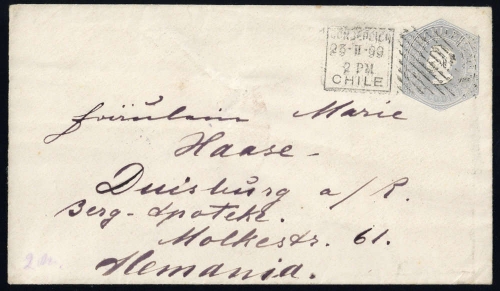 CONCEPCION
23·II·99
2 PM
CHILE
Fräulein Marie
Haase-
Duisburg a/R.
Berg-Apoteke.
Molkestr. 61.
Alemania.